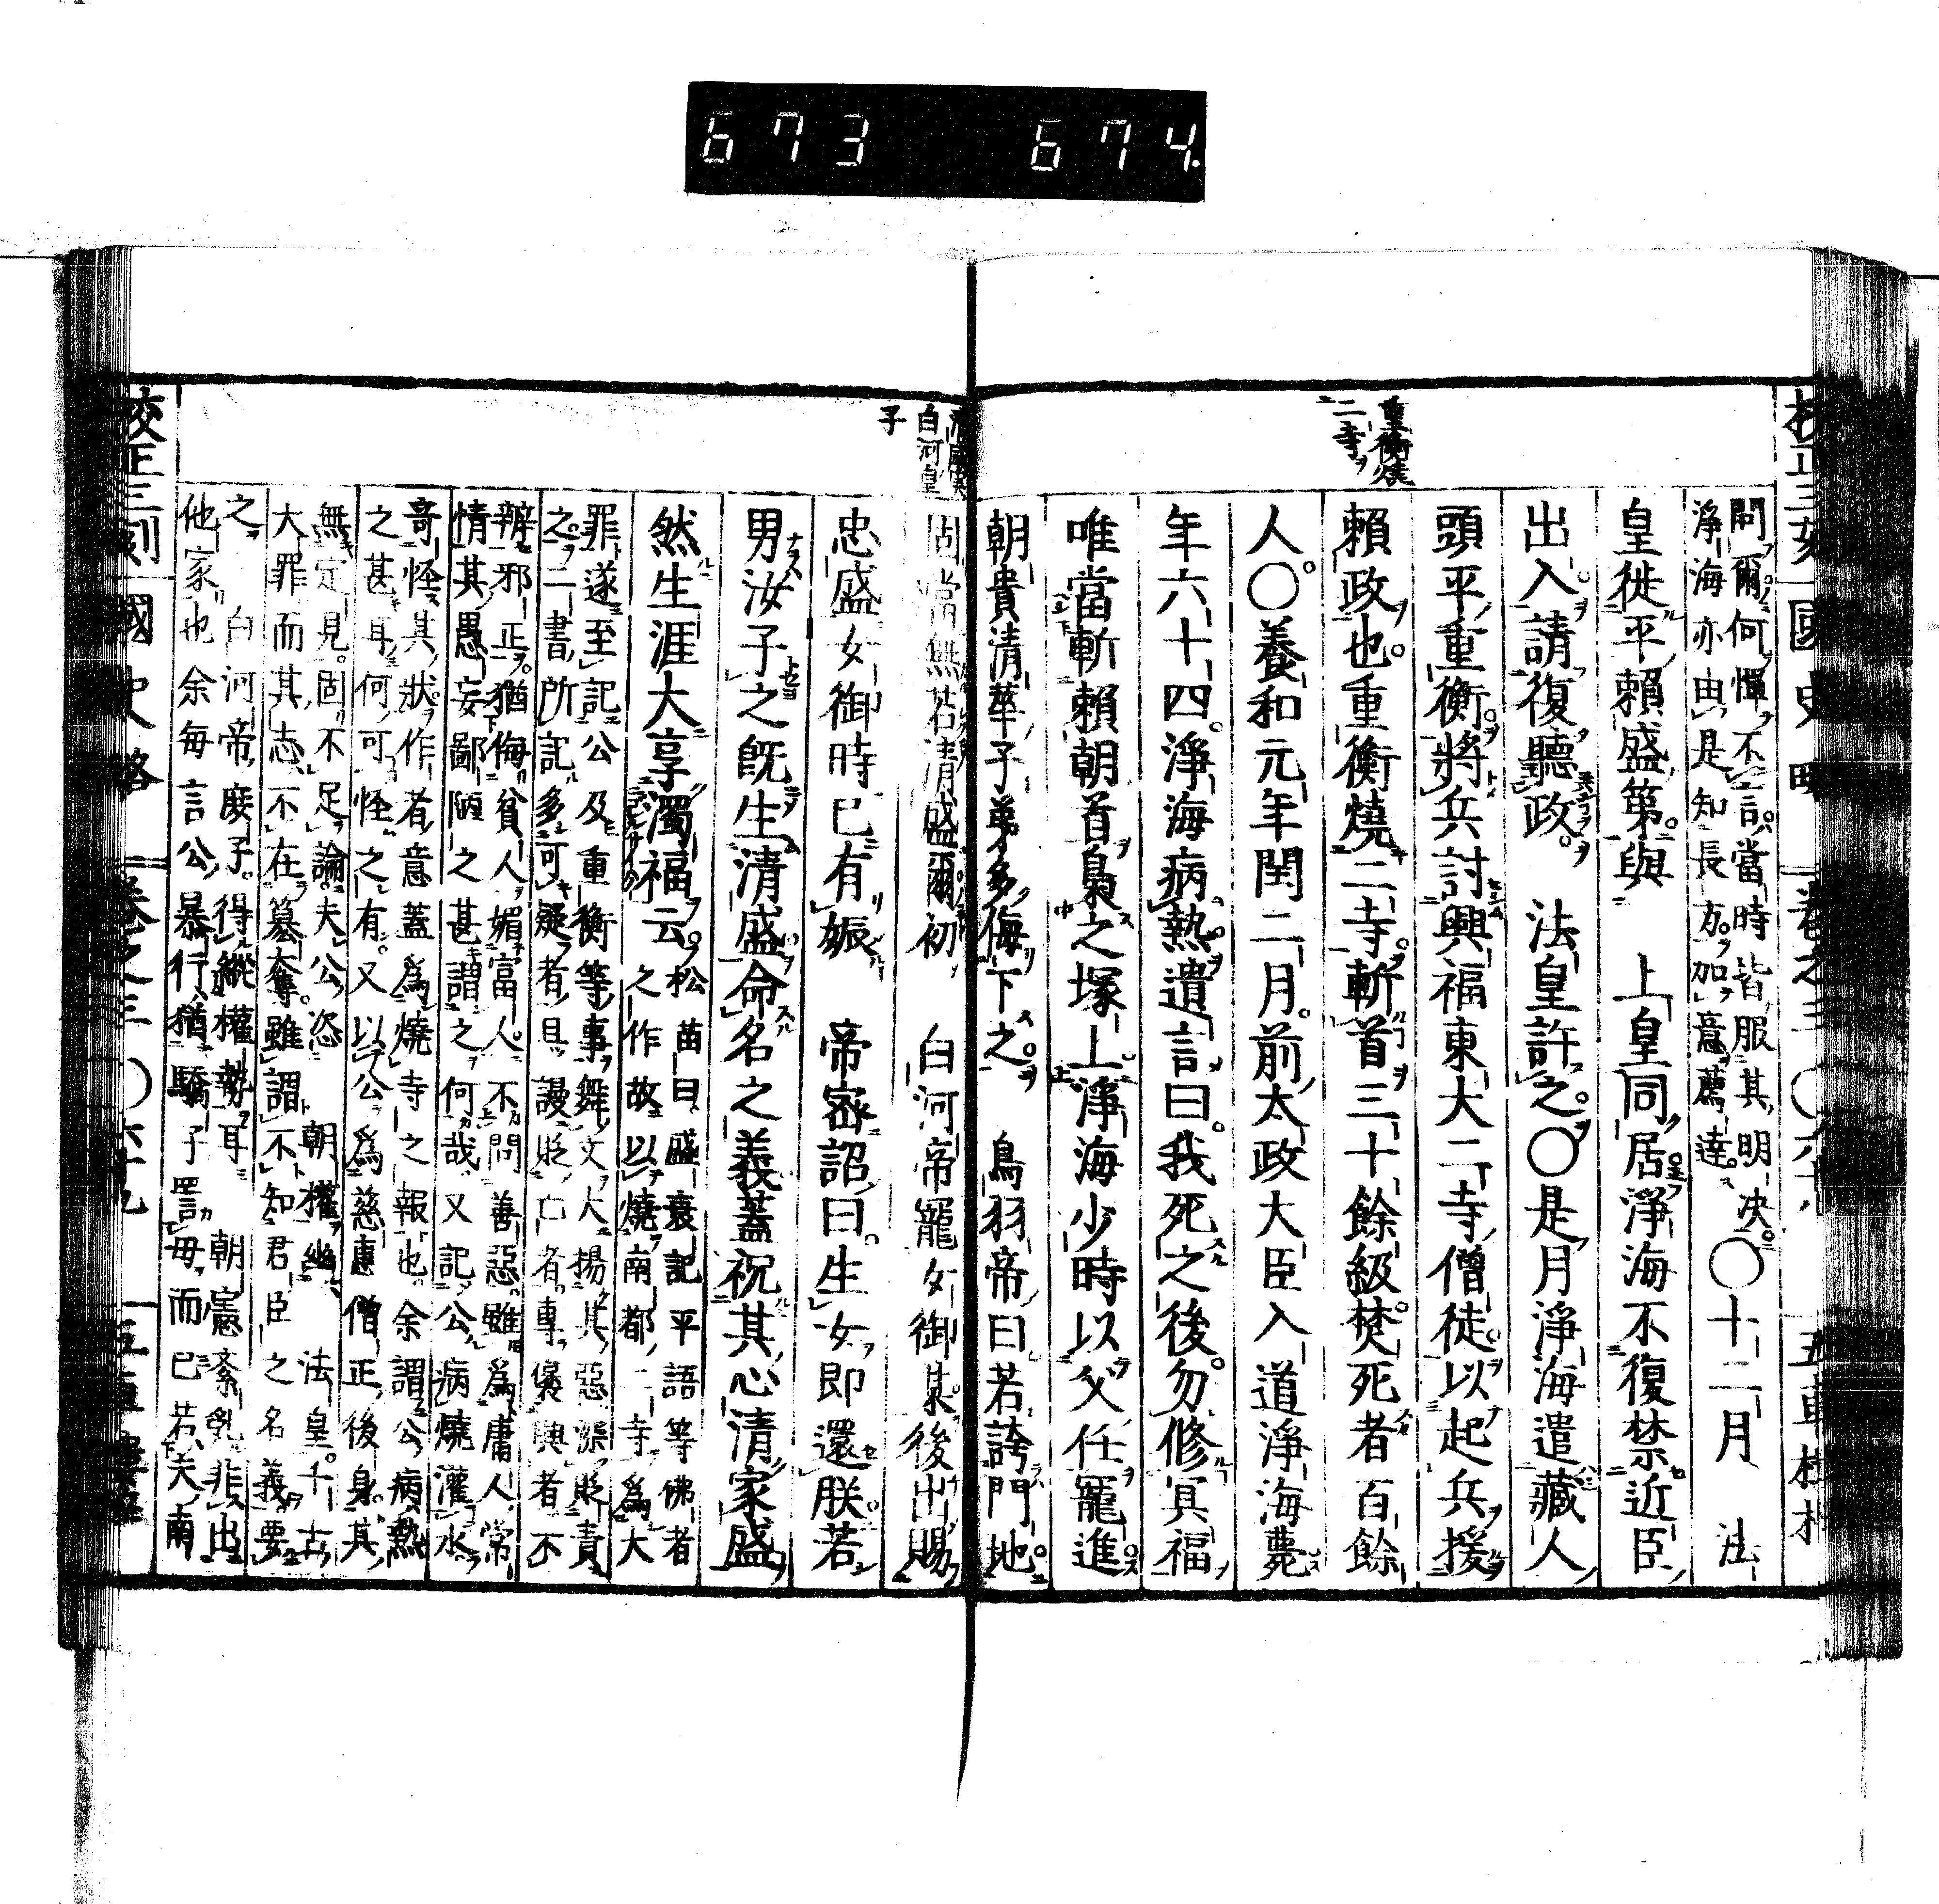 673 674
國史略
重衡燒
二寺
問爾何憚不言當時皆服其明决〇十二月 法
淨海亦由是知長方加意薦達
皇徙平賴盛第與 上皇同居淨海不復禁近臣
出入請復聽政 法皇許之〇是月淨海遣藏人
頭平重衡將兵討興福東大二寺僧徒以起兵援
賴政也重衡燒二寺斬首三十餘級焚死者百餘
人〇養和元年閏二月前太政大臣入道淨海薨
年六十四淨海病熱遺言曰我死之後勿修冥福
唯當斬賴朝首梟之塚上淨海少時以父任寵進
朝貴清華子弟多侮下之 鳥羽帝曰若誇門地
白河皇
子
固當無若清盛爾初 白河帝寵女御某後出賜
忠盛女御時已有娠 帝密詔曰生女即還朕若
男汝子之既生清盛命名之義蓋祝其心清家盛
然生涯大享濁福云
松苗曰盛衰記平語等佛者
之作故以燒南都二寺爲大
罪遂至記公及重衡等事舞文大揚其惡深貶責
之二書所記多可疑者且謾貶亡者專褒興者不
辨邪正猶侮貧人媚富人不問善惡雖爲庸人常
情其愚妄鄙陋之甚謂之何哉又記公病燒灌水
奇怪其狀作者意蓋爲燒寺之報也余謂公病熱
之甚耳何可怪之有又以公爲慈惠僧正後身其
無定見固不足論夫公恣 朝權幽 法皇千古
大罪而其志不在簒奪雖謂不知君臣之名義要
之 白河帝庶子得縱權勢耳 朝憲紊亂非出
他家也余每言公暴行猶驕子詈母而已若夫南
校正三刻 國史略